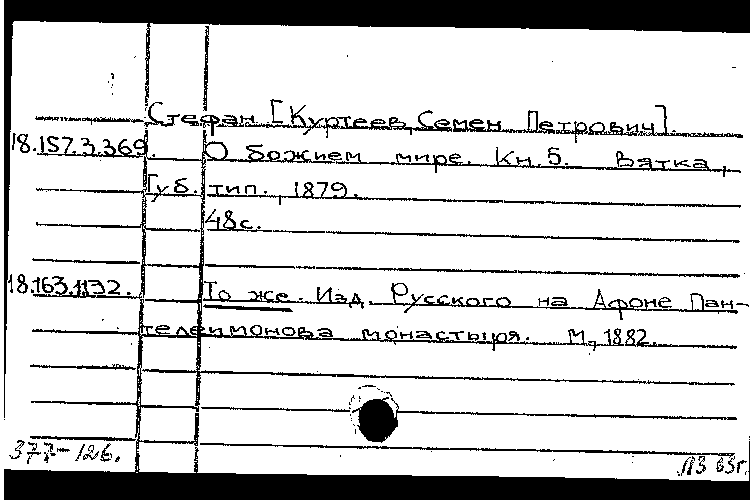 Стефан [Куртеев, Семен Петрович].
18.157.3.369. О божием мире. Кн. 5. Вятка,
Губ. тип., 1879.
48с.
18.163.1192. То же. Изд. Русского на Афоне Пан-
телеимонова монастыря. М., 1882.
377-126. ЛЗ 63г.